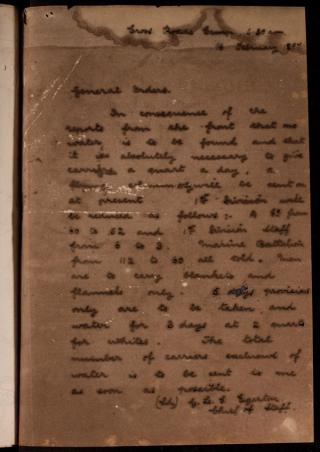 Cross Roads Camp 6.30 am
February
General Orders.
In consequence of the
reports from the front that no
water is to be found and that
it is absolutely necessary to give
carriers a quart a day, a
only will be sent on
at present 1st Division will
be reduced as follows:- A 69 from
to 62 and 1st Division Staff
from 5 to 3. Marine Battalion
from 112 to 60 all told. Men
are to carry blankets and
flannels only. 5 days provisions
only are to be taken and
water for 3 days at 2 quarts
for whites. The total
number of carriers exclusive of
water is to be sent to me
as soon as possible.
(Sd) G. Le C Egerton
Chief of Staff.